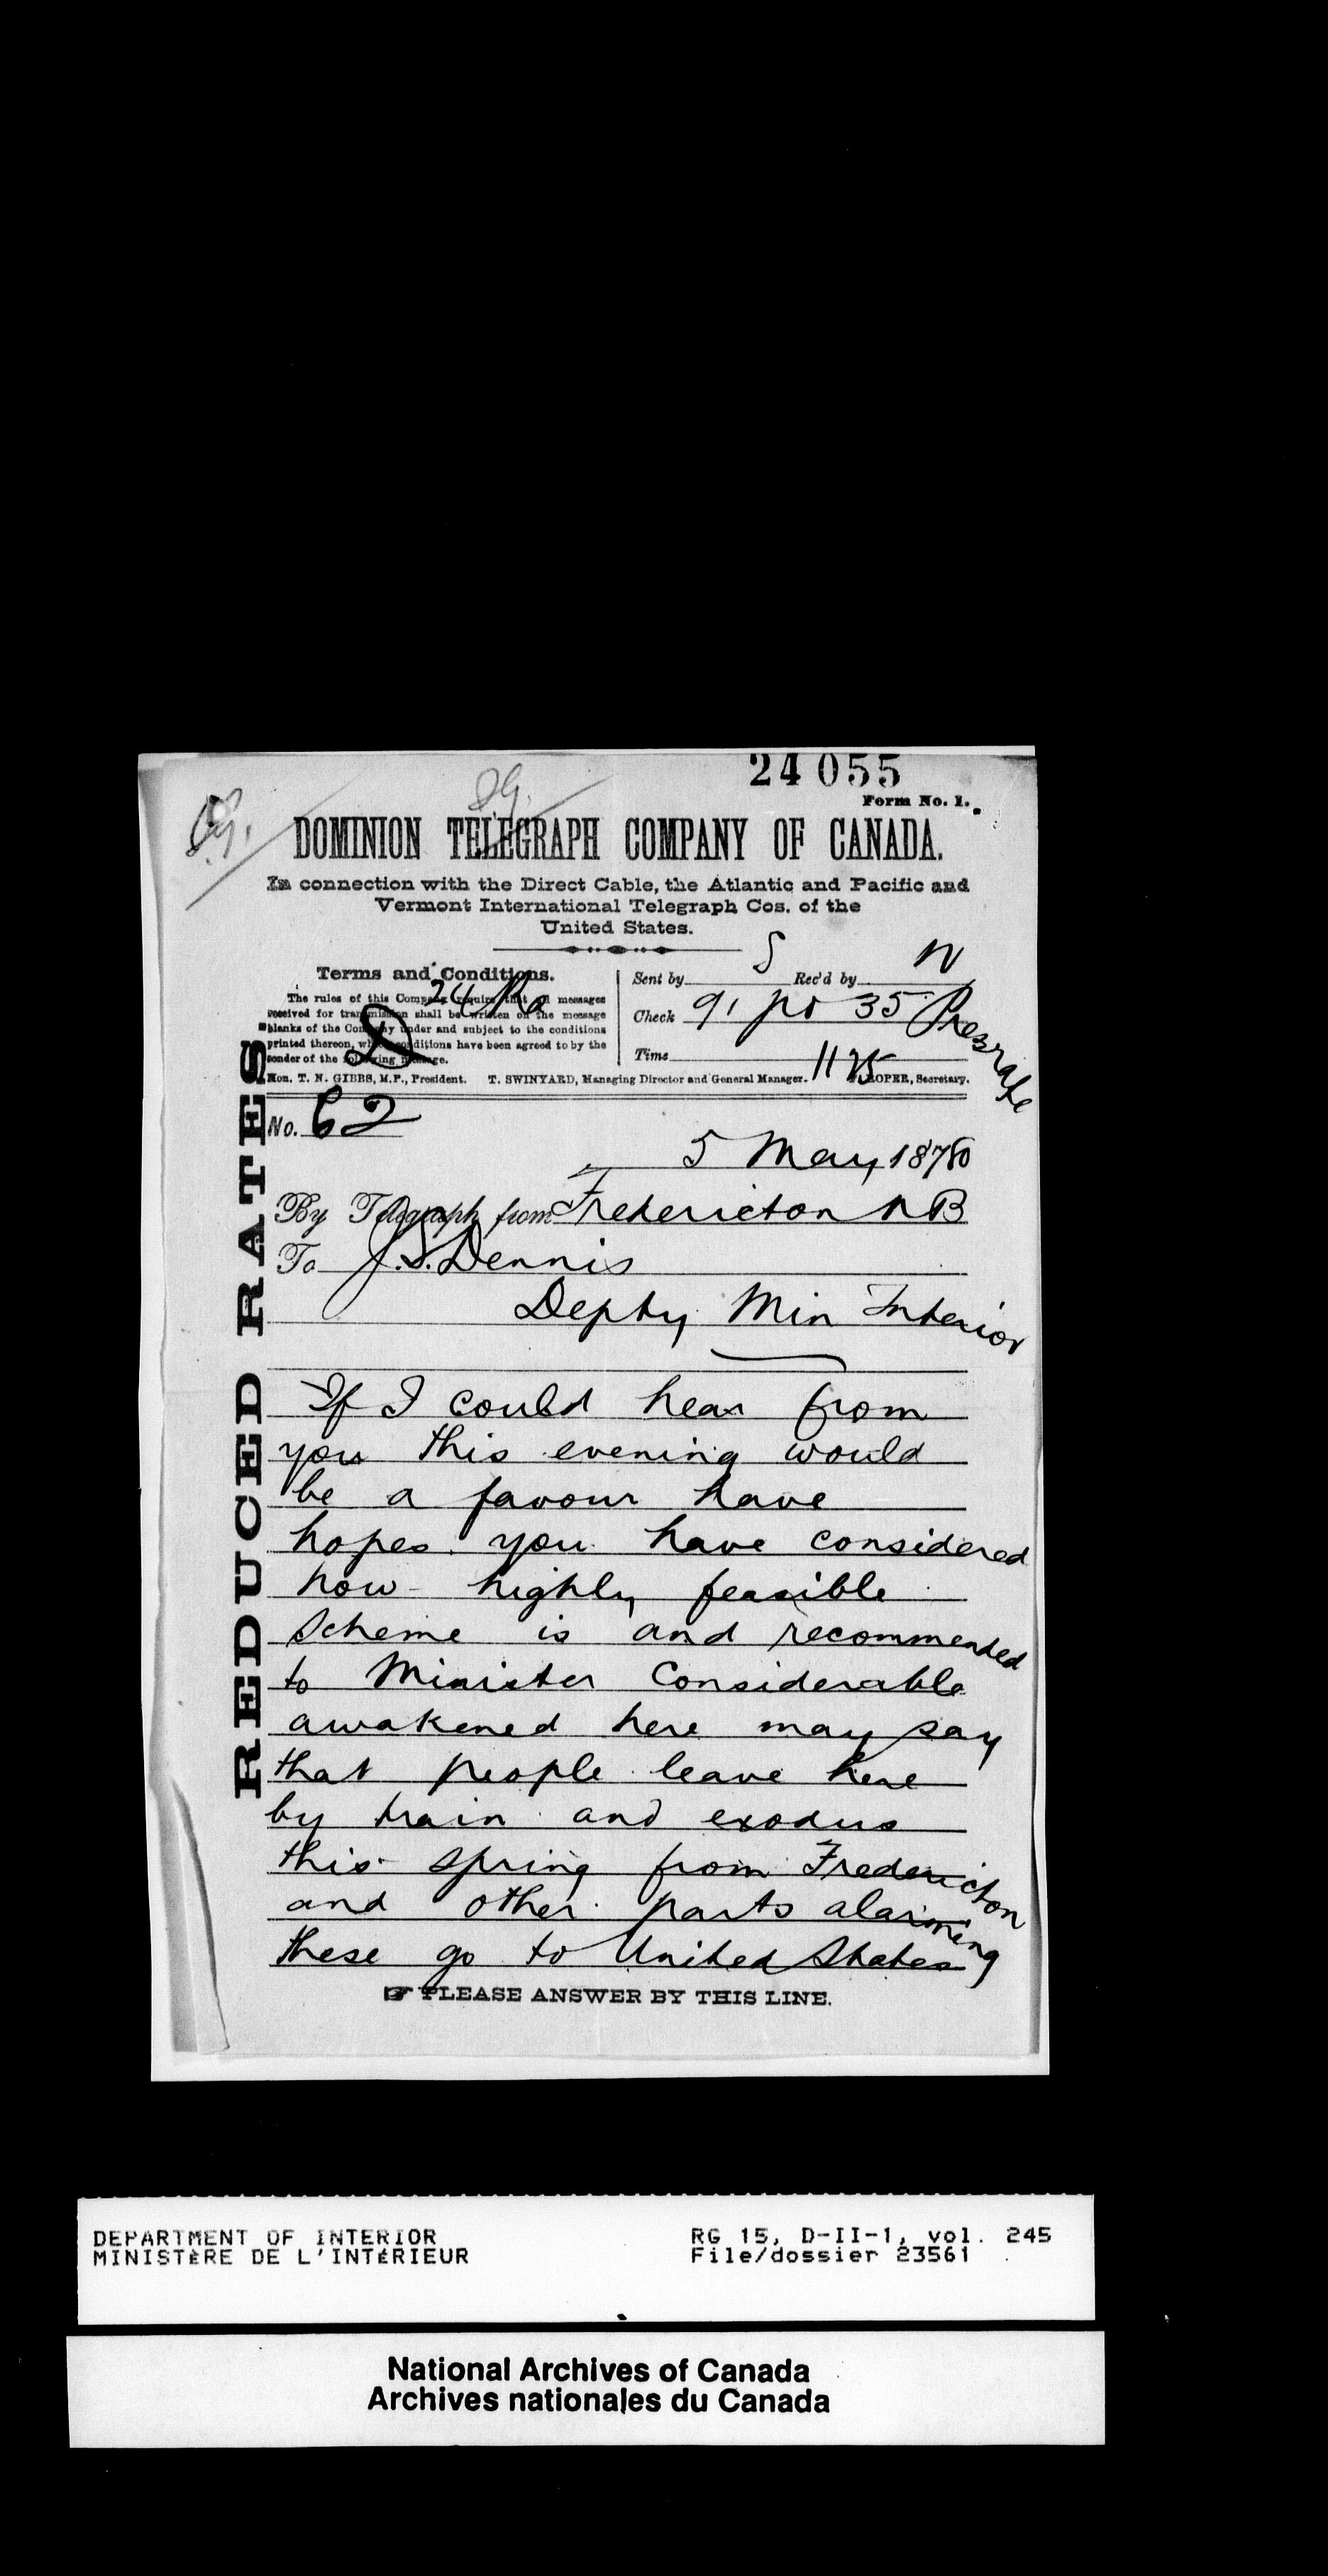 24055
Form No. 1.
DOMINION TELEGRAPH COMPANY OF CANADA.
In connection with the Direct Cable, the Atlantic and Pacific and
Vermont International Telegraph Cos. of the
United States.
Terms and Conditions.
The rules of this Company require that all messages
received for transmission shall be written on the message
blanks of the Company under and subject to the conditions
printed thereon, which conditions have been agreed to by the
sender of the following message.
Sent by S Rec'd by N
Check 91 pd 35 Pressrate
Time 11 25
Hon. T. N. GIBBS, M.P., President. T. SWINYARD, Managing Director and General Manager. ROPER, Secretary.
REDUCED RATES
No. 62
5 May 1880
By Telegraph from Fredericton NB
To J.S. Dennis
Depty Min Interior
If I could hear from
you this evening would
be a favour have
hopes you have considered
how highly feasible
scheme is and recommended
to Minister Considerable
awakened here may say
that people leave here
by train and exodus
this spring from Fredericton
and other parts alarming
these go to United States
PLEASE ANSWER BY THIS LINE.
DEPARTMENT OF INTERIOR
MINISTÈRE DE L'INTÉRIEUR
RG 15, D-II-1, vol. 245
File/dossier 23561
National Archives of Canada
Archives nationales du Canada